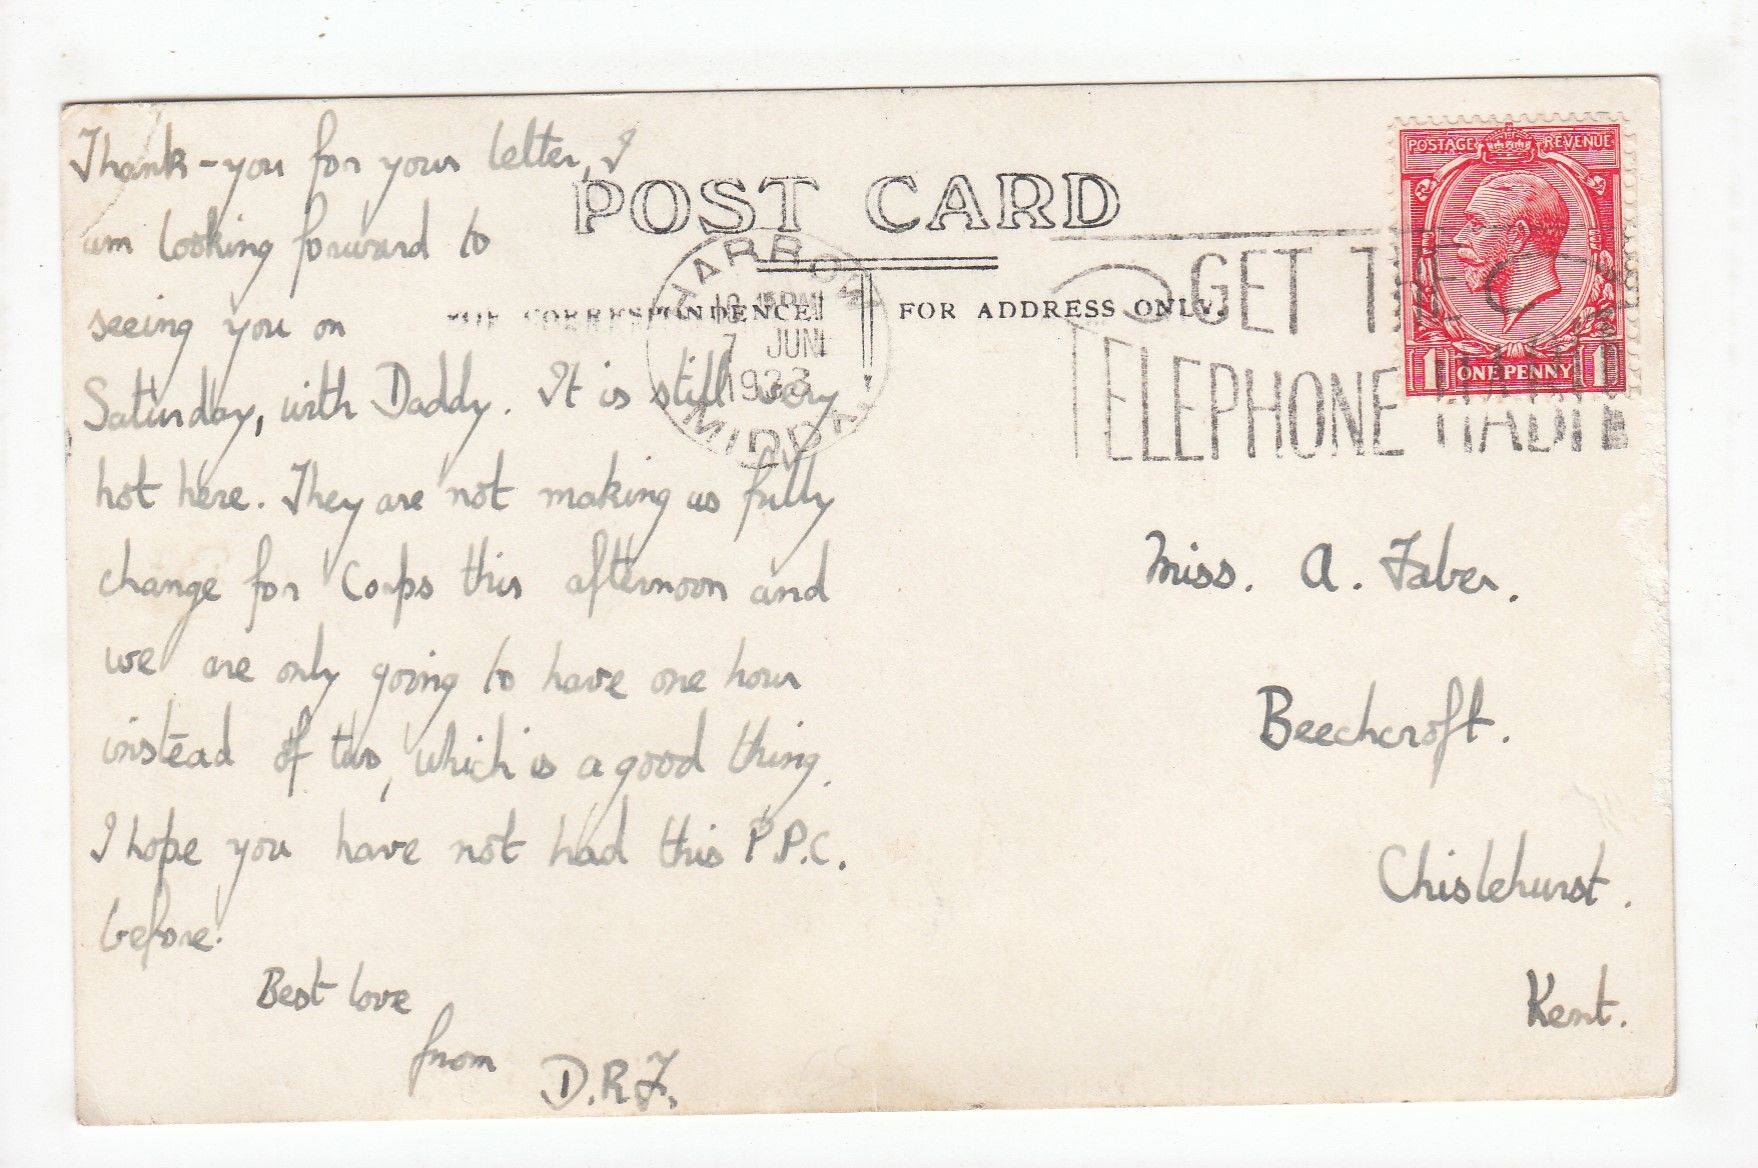 Thank-you for your letter, I
am looking forward to
seeing you on
Saturday, with Daddy. It is still very
hot here. They are not making us fully
change for Corps this afternoon and
we are only going to have one hour
instead of two, which is a good thing.
I hope you have not had this P.P.C.
before.
Best love
from D.R.F.
POST CARD
FOR CORRESPONDENCE
FOR ADDRESS ONLY.
HARROW
7 JUN
1933
MIDDX
GET THE
TELEPHONE HABIT
POSTAGE REVENUE
1 ONE PENNY 1
Miss. A. Faber.
Beechcroft.
Chislehurst.
Kent.